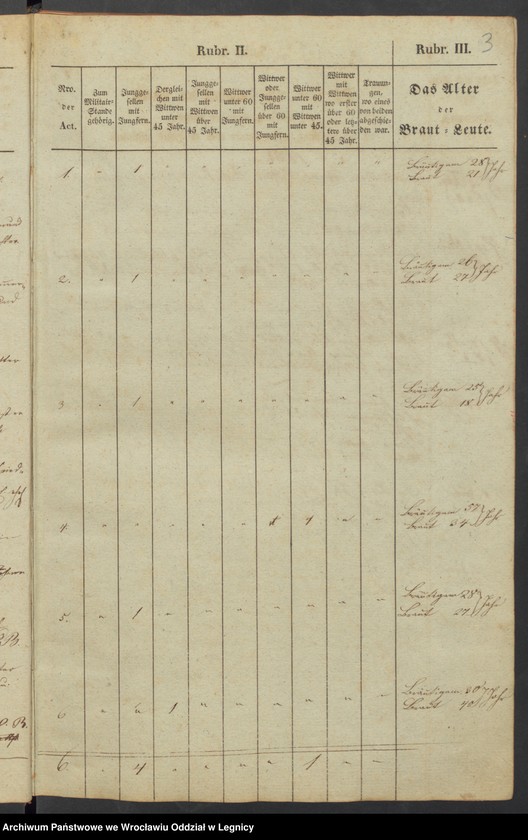 3
Rubr. II.
Rubr. III.
Nro.
der
Act.
Zum
Militair-
Stande
gehörig.
Jungge-
sellen
mit
Jungfern.
Derglei-
chen mit
Wittwen
unter
45 Jahr.
Jungge-
sellen
mit
Wittwen
über
45 Jahr.
Wittwer
unter 60
mit
Jungfern.
Wittwer
oder
Jungge-
sellen
über 60
mit
Jungfern.
Wittwer
unter 60
mit
Wittwen
unter 45.
Wittwer
mit
Wittwen
wo erster
über 60
oder letz-
tere über
45 Jahr.
Trauun-
gen,
wo eines
von beiden
abgeschie-
den war.
Das Alter
der
Braut-Leute.
1 " 1 " " " " " " "
Bräutigam 28
Braut 21 Jahr
2. " 1 " " " " " " "
Bräutigam 26
Braut 27 Jahr
3 " 1 " " " " " " "
Bräutigam 25
Braut 18 Jahr
4. " " " " " 1 " "
Bräutigam 57
Braut 34 Jahr
5. " 1 " " " " " " "
Bräutigam 28
Braut 27. Jahr
6 " " 1 " " " " " "
Bräutigam
Braut 40 Jahr
6. " 4 " " " " 1 " "
Archiwum Państwowe we Wrocławiu Oddział w Legnicy